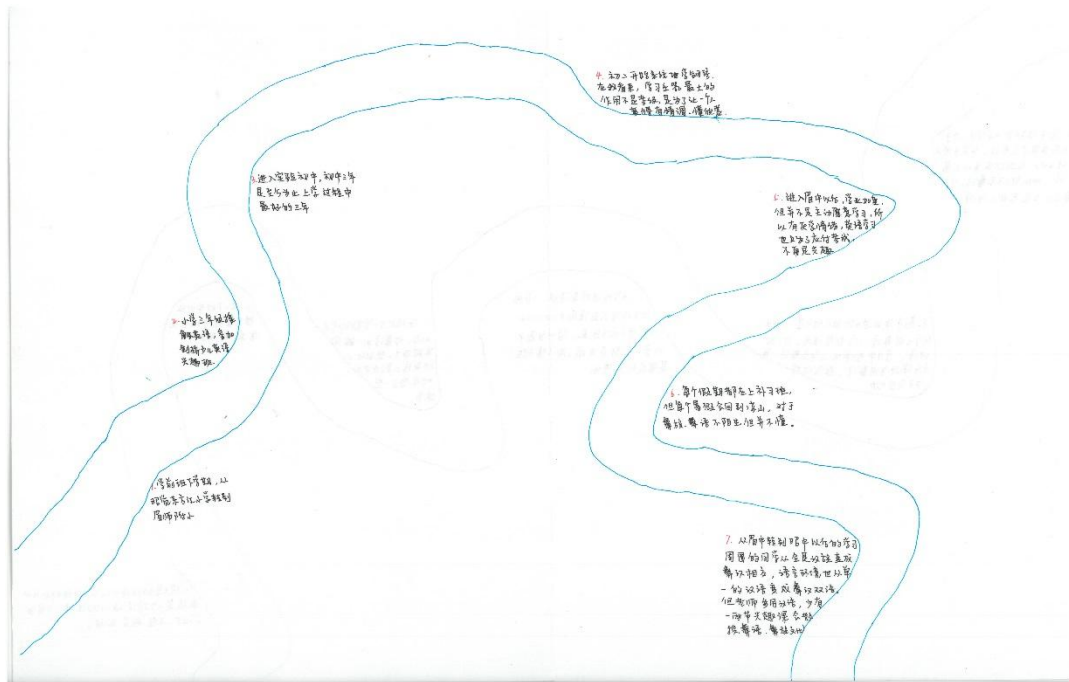 1. 学前班下学期，从
昭觉东方红小学转到
眉师附小
2. 小学三年级接
触英语，参加
剑桥少儿英语
兴趣班
3. 进入实验初中，初中三年
是至今为止上学过程中
最好的三年
4. 初二开始系统地学
在我看来，学习 最大的
作用不是考级，是为了让一个人
懂得有情调、懂
5. 进入眉中以后，学业加重，
但并不是主动愿意学习，所
以有厌学情绪，英语学习
也只为了应付考试，
不再是兴趣
6. 每个假期都在上补习班，
但每个暑假会回到凉山，对于
彝族、彝语不陌生但并不懂。
7. 从眉中转到昭中以后的学习
周围的同学从全是汉族变成
彝汉相交，语言环境也从单
一的汉语变成彝汉双语。
但老师多用汉语，少有
一两节兴趣课会教
授彝语、彝族文化